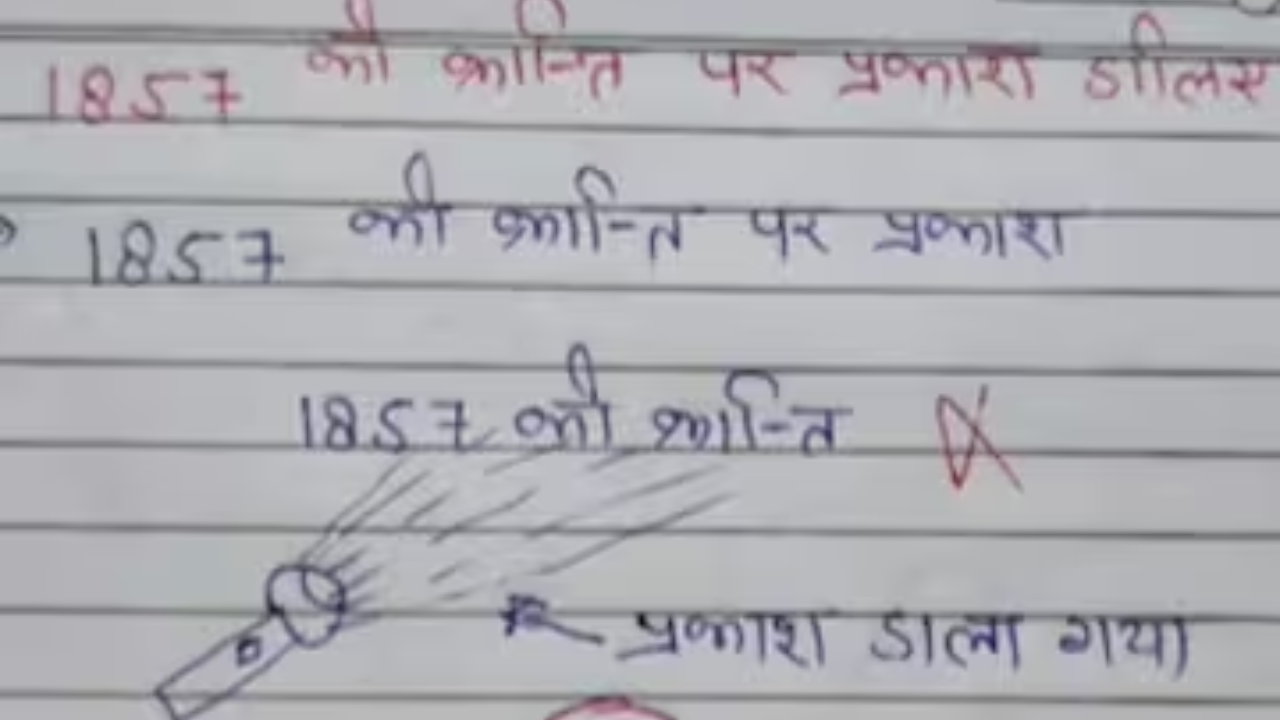 1857 की क्रान्ति पर प्रकाश डालिए
1857 की क्रान्ति पर प्रकाश
1857 की क्रान्ति
प्रकाश डाला गया